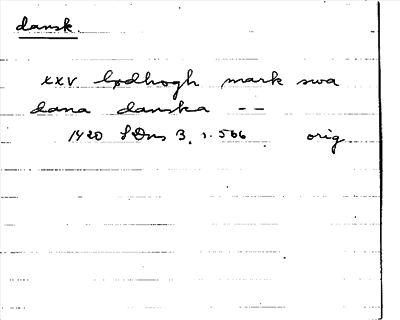 dansk
xxv lødhogh mark swa
dana danska - -
1420 SDns 3, s. 566 orig